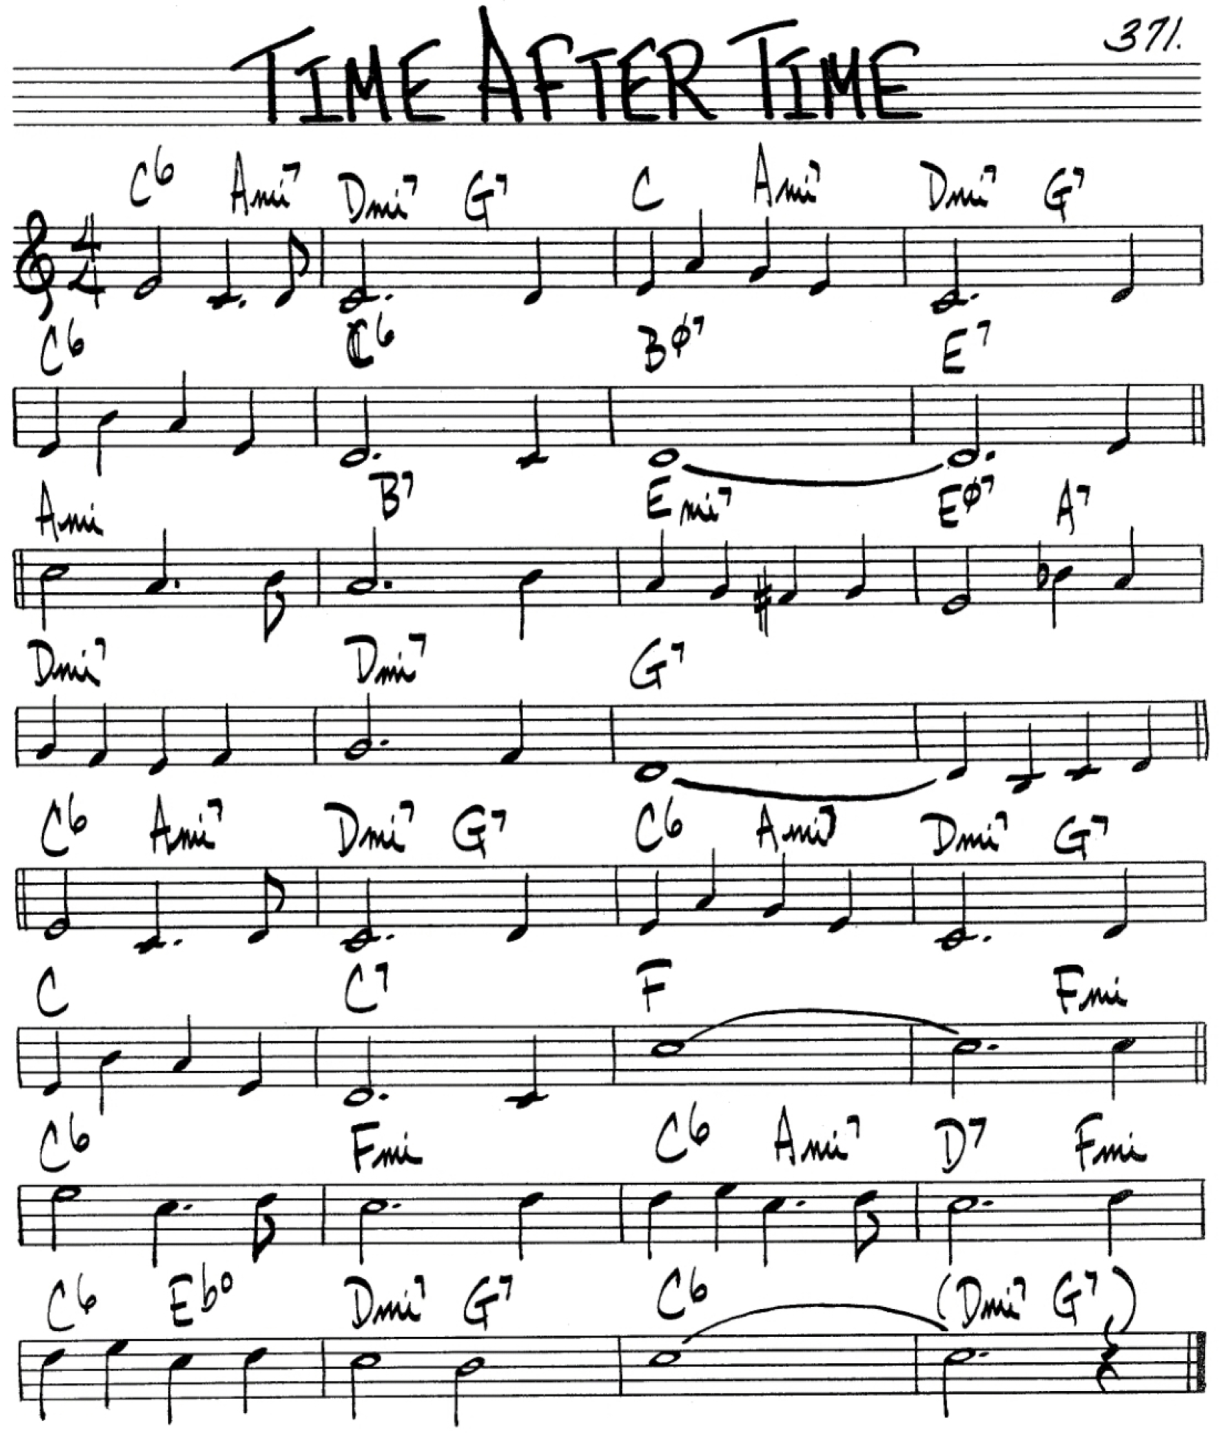 371.
TIME AFTER TIME
C6 Ami7 Dmi7 G7 C Ami7 Dmi7 G7
4
4
C6 C6 Bø7 E7
Ami B7 Emi7 Eø7 A7
Dmi7 Dmi7 G7
C6 Ami7 Dmi7 G7 C6 Ami7 Dmi7 G7
C C7 F Fmi
C6 Fmi C6 Ami7 D7 Fmi
C6 Eb° Dmi7 G7 C6 (Dmi7 G7)